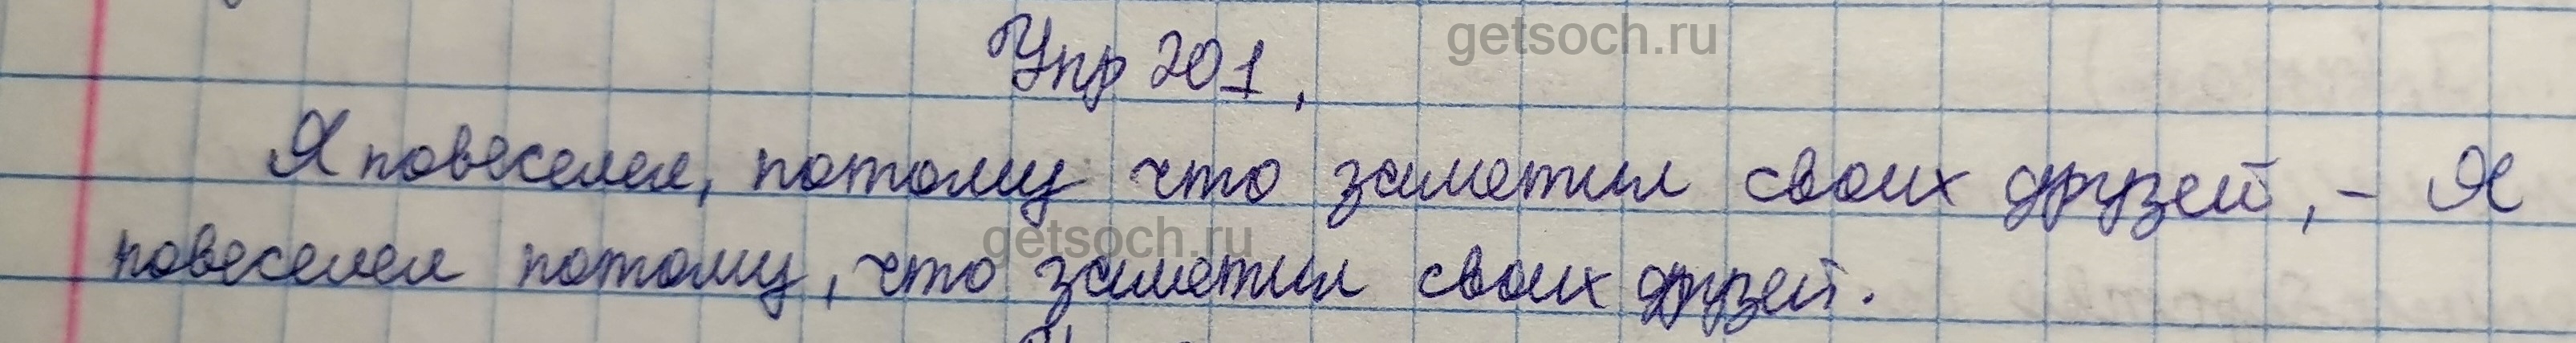 Упр 201.
getsoch.ru
Я повеселел, потому что заметил своих друзей, - Я
getsoch.ru
повеселел потому, что заметил своих друзей.